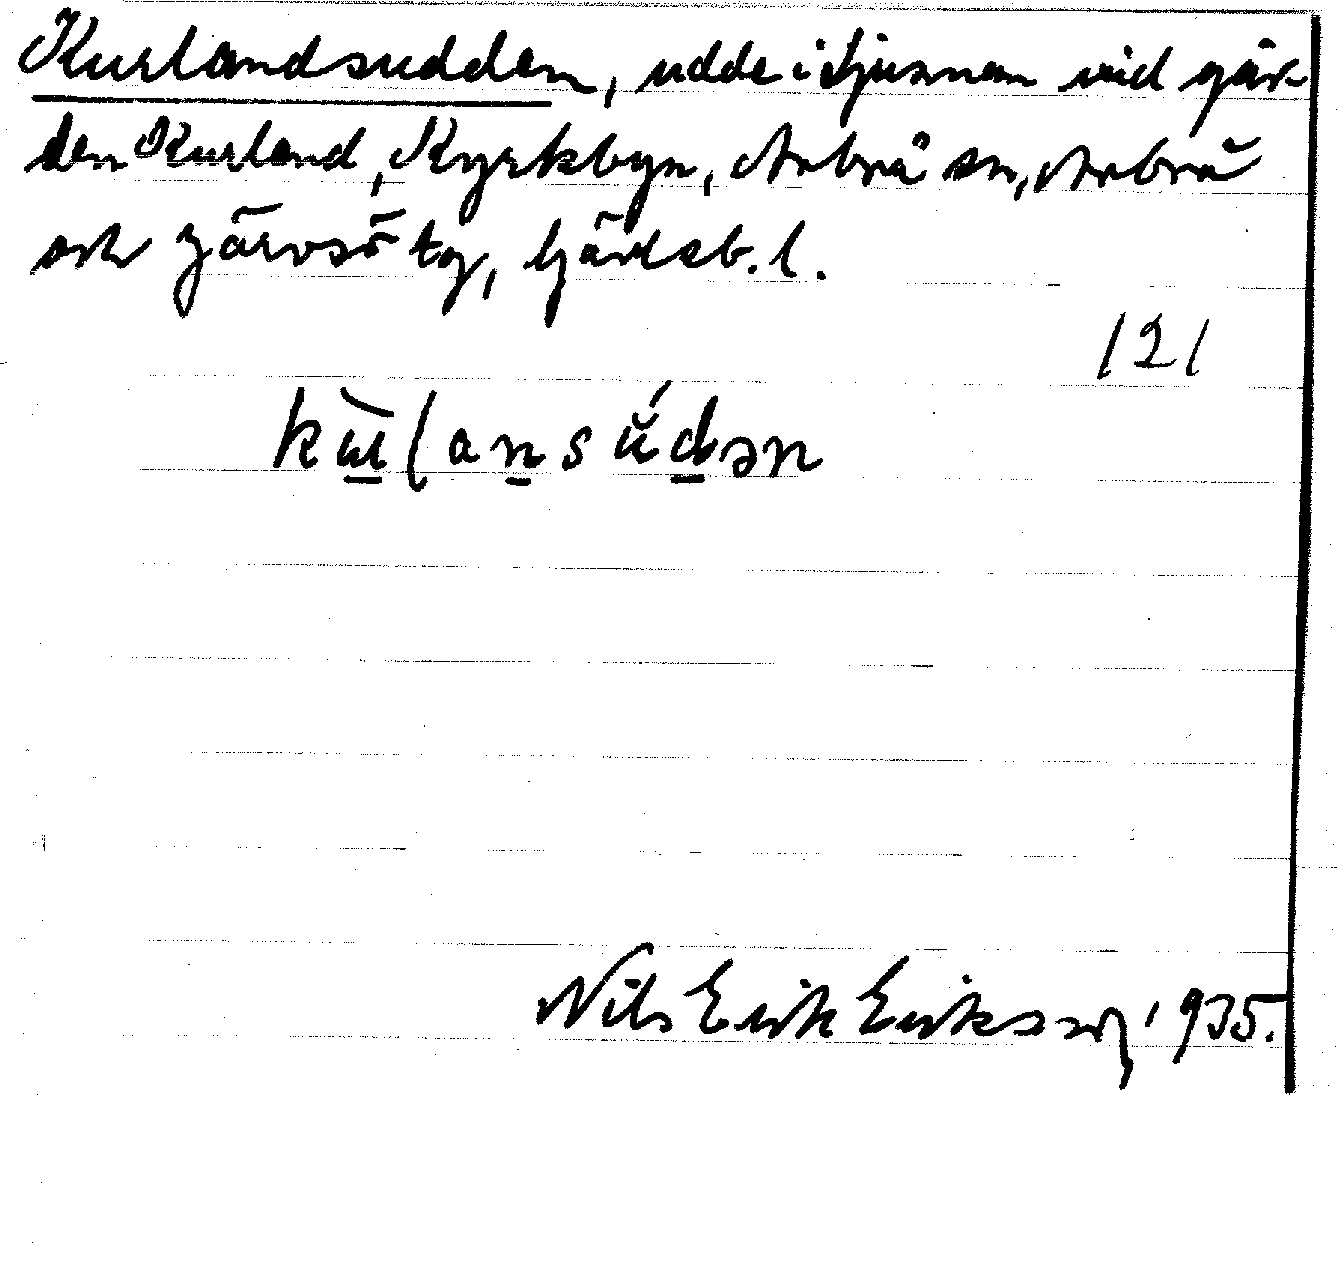 Kurlandsudden, udde i Ljusnan vid går-
den Kurland, Kyrkbyn, Arbrå sn, Arbrå
och Järvsö tg, Gävleb. l.
121
Nils Erik Eriksson, 1935.